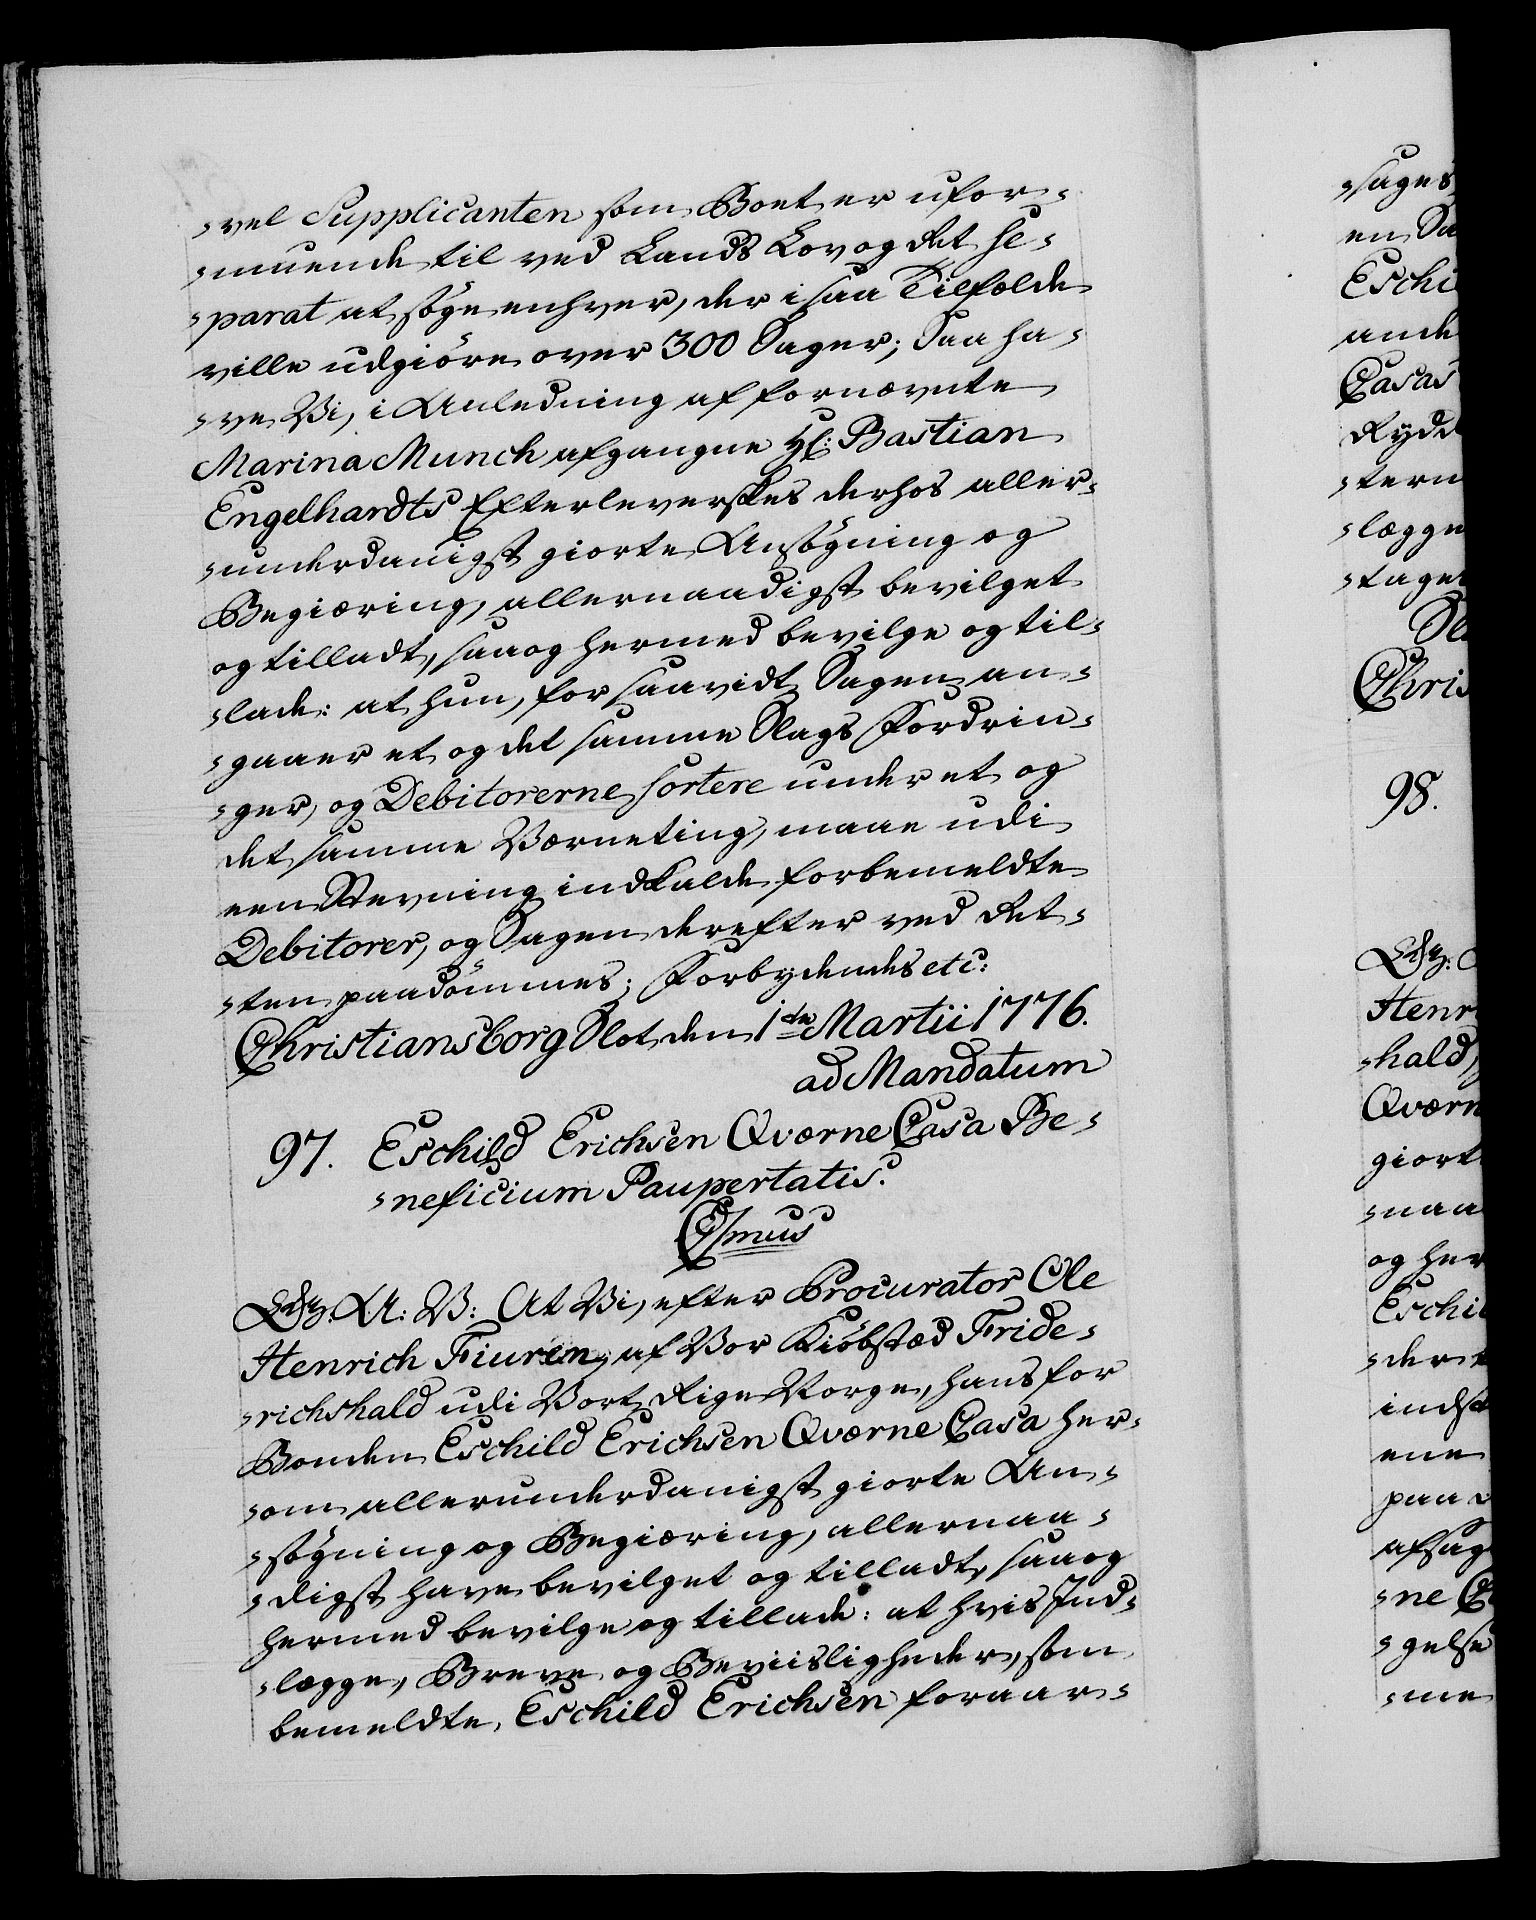 -vel Supplicanten som Boet er ufor-
-muende til ved Lands Lov og Ret se-
-parat at søge enhver, der i saa Tilfælde
ville udgiøre over 300 Sager; Saa ha-
-ve Vi, i Anledning af fornævnte
Marina Munch afgangne Hr: Bastian
Engelhardts Efterleverskes derhos aller-
-underdanigst giorte Ansøgning og
Begiæring, allernaadigst bevilget
og tilladt, saa og hermed bevilge og til-
-lade: at hun, for saavidt Sagen an-
-gaaer et og det samme Slags Fordrin-
-ger, og Debitorerne sortere under et og
det samme Værneting, maae udi
een Stevning indkalde forbemeldte
Debitorer, og Sagen derefter ved Ret-
-ten paadømmes; Forbydendes etc:
Christiansborg Slot den 1ste Martii 1776.
ad Mandatum
97. Eschild Erichsen Qværne Casa Be-
-neficium Paupertatis.
C7mus
G: A: V: At Vi, efter Procurator Ole
Henrich Fiuren, af Vor Kiøbstæd Fride-
-richshald udi Vort Rige Norge, hans for
Bonden Eschild Erichsen Qværne Casa her-
-om allerunderdanigst giorte An-
-søgning og Begiæring, allernaa-
-digst have bevilget og tilladt, saa og
hermed bevilge og tillade: at hvis Ind-
-lægge, Breve og Beviisligheder, som
bemeldte Eschild Erichsen foraar-
-sages
en Sa
Eschi
ande
Casas
Rydd
-tern
-lægge
-tager
Sl
Chris
98.
Henr
-hald,
Qværn
giort
-naa
og her
Eschil
-der
indst
ene
paa
afsag
-ne C
-gelse
-me